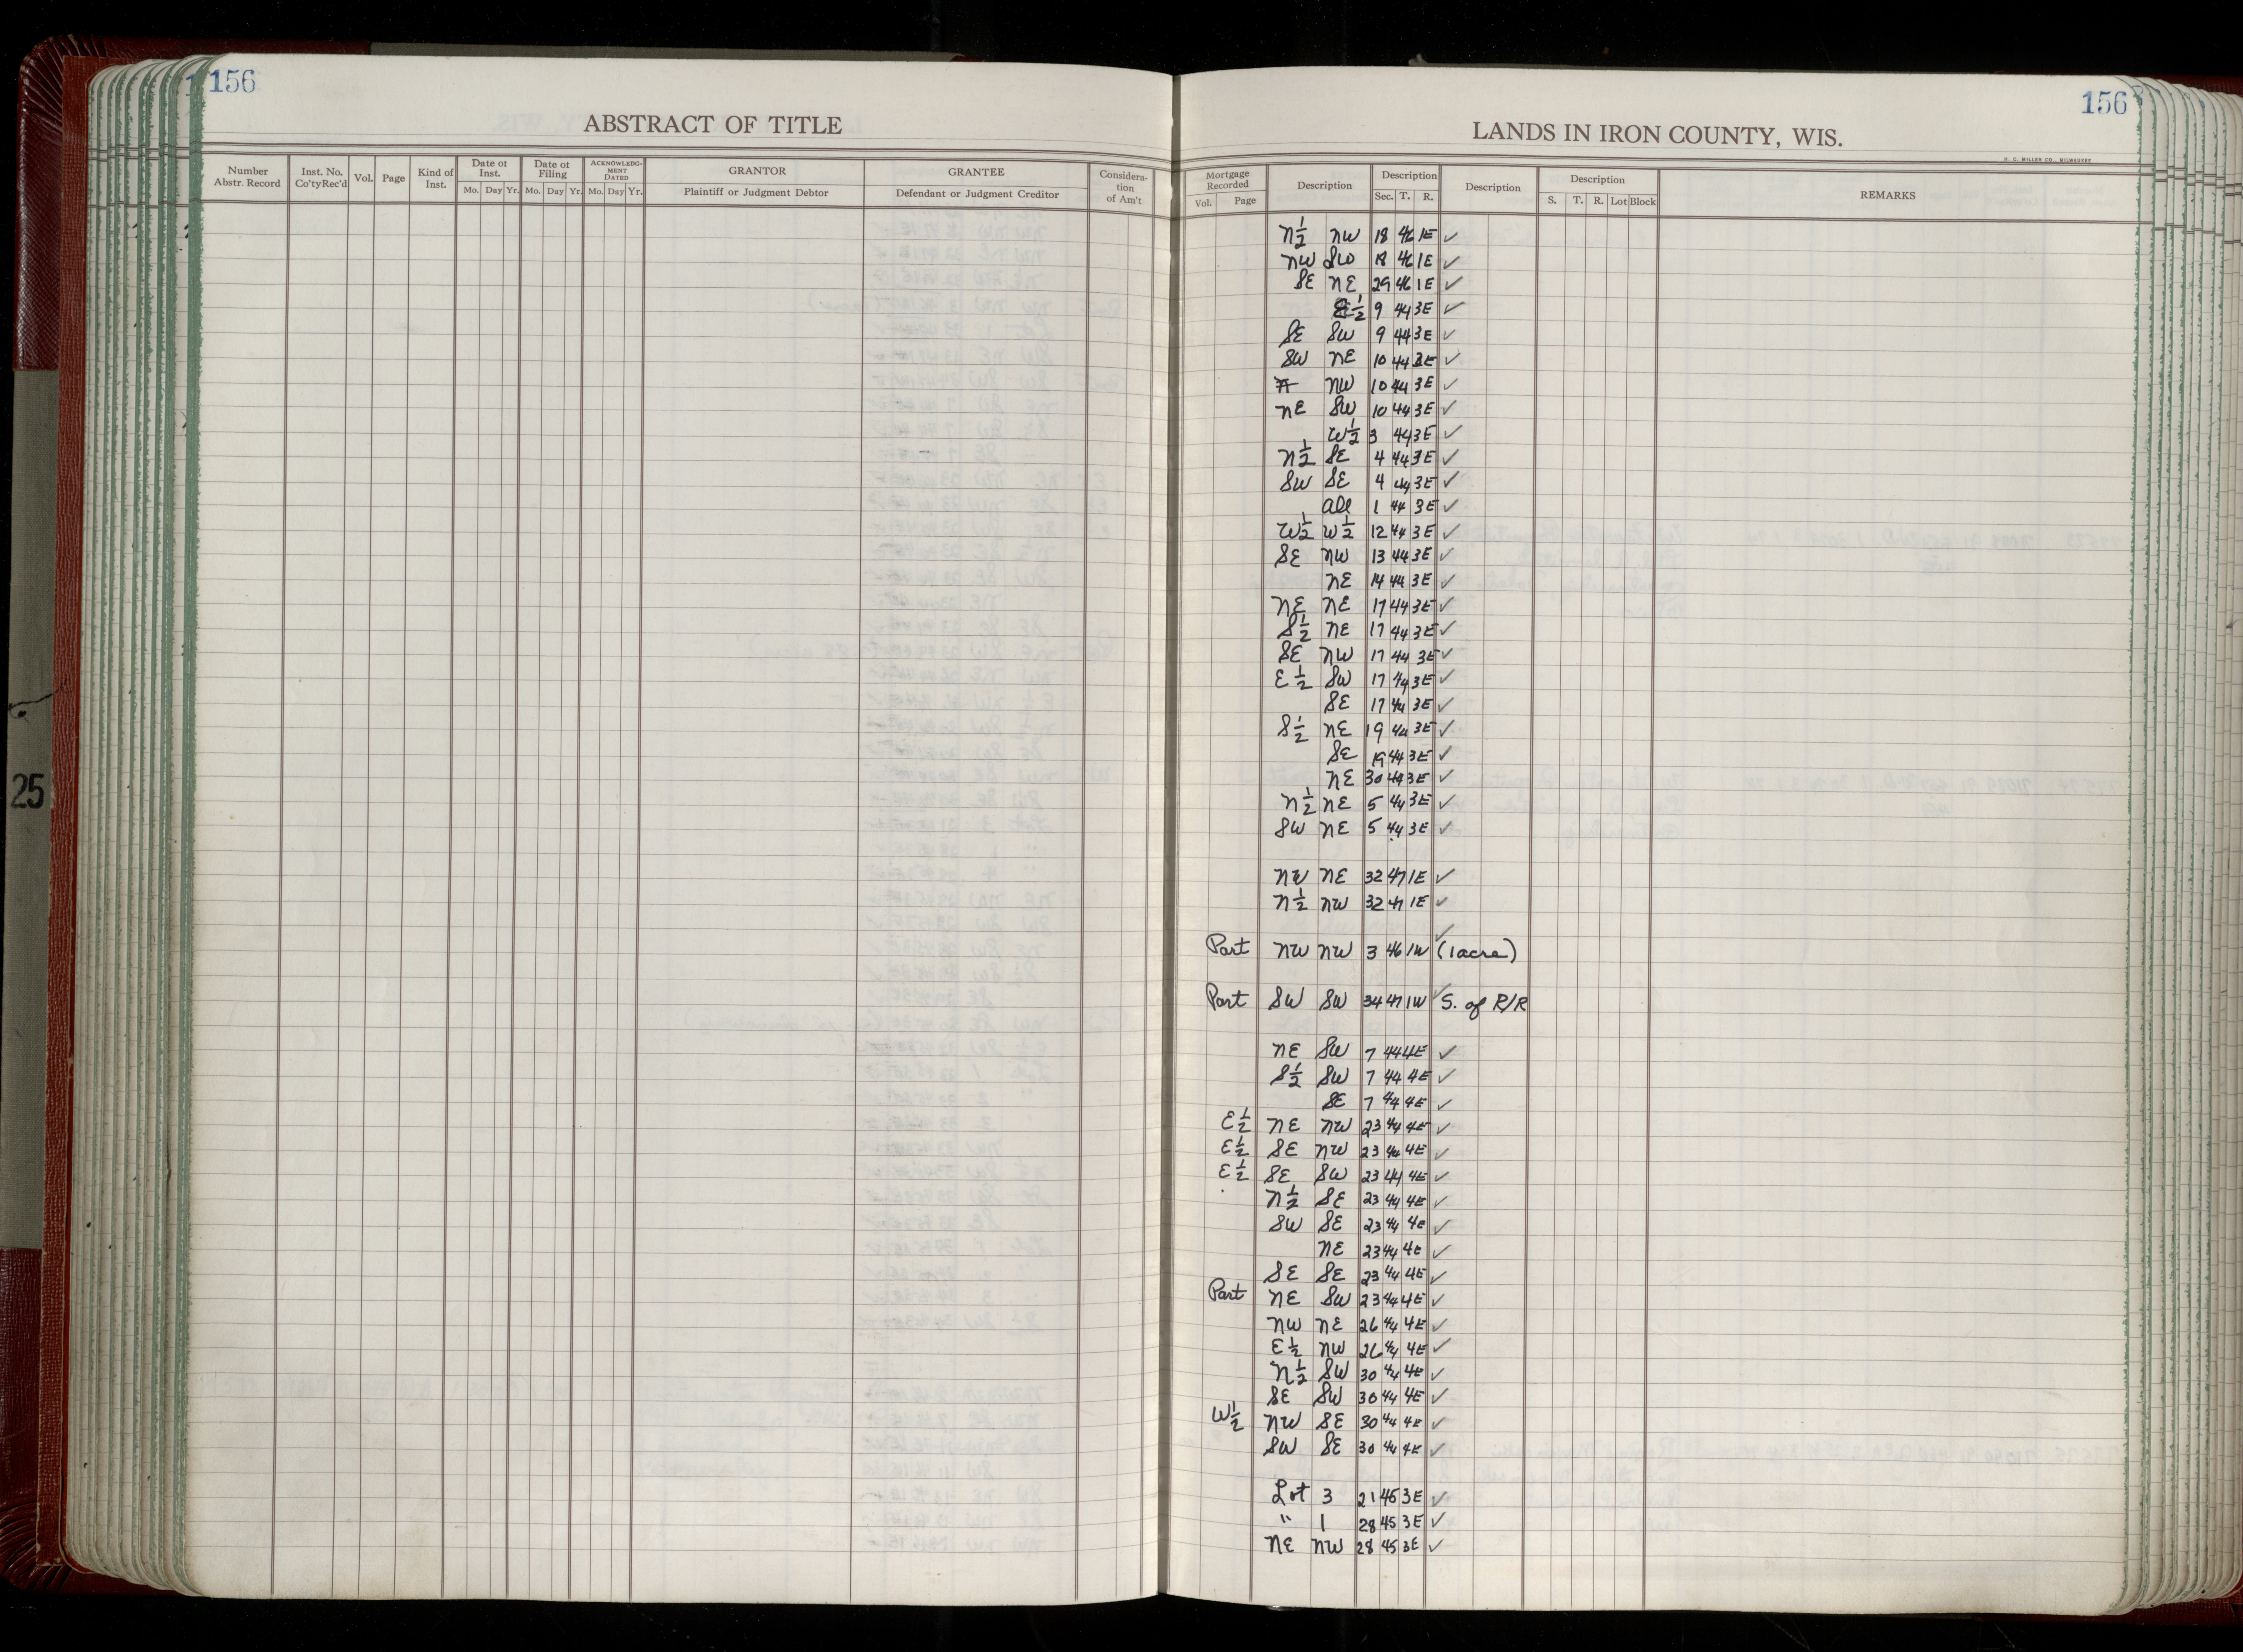 156
ABSTRACT OF TITLE
Number Abstr. Record
Inst. No. Co'ty Rec'd
Vol.
Page
Kind of Inst.
Date of Inst.
Mo. Day Yr.
Date of Filing
Mo. Day Yr.
ACKNOWLEDGMENT DATED
Mo. Day Yr.
GRANTOR
Plaintiff or Judgment Debtor
GRANTEE
Defendant or Judgment Creditor
Consideration of Am't
25
156
LANDS IN IRON COUNTY, WIS.
H. C. MILLER CO., MILWAUKEE
Mortgage Recorded
Vol. Page
Description
Description
Sec. T. R.
Description
Description
S. T. R. Lot Block
REMARKS
N½ NW 18 46 1E ✓
NW SW 18 46 1E ✓
SE NE 29 46 1E ✓
E½ 9 44 3E ✓
SE SW 9 44 3E ✓
SW NE 10 44 3E ✓
NW 10 44 3E ✓
NE SW 10 44 3E ✓
W½ 3 44 3E ✓
N½ SE 4 44 3E ✓
SW SE 4 44 3E ✓
all 1 44 3E ✓
W½ W½ 12 44 3E ✓
SE NW 13 44 3E ✓
NE 14 44 3E ✓
NE NE 17 44 3E ✓
S½ NE 17 44 3E ✓
SE NW 17 44 3E ✓
E½ SW 17 44 3E ✓
SE 17 44 3E ✓
S½ NE 19 44 3E ✓
SE 19 44 3E ✓
NE 30 44 3E ✓
N½ NE 5 44 3E ✓
SW NE 5 44 3E ✓
NW NE 32 47 1E ✓
N½ NW 32 47 1E ✓
Part NW NW 3 46 1W ✓ (1 acre)
Part SW SW 34 47 1W ✓ S. of R/R
NE SW 7 44 4E ✓
S½ SW 7 44 4E ✓
SE 7 44 4E ✓
E½ NE NW 23 44 4E ✓
E½ SE NW 23 44 4E ✓
E½ SE SW 23 44 4E ✓
N½ SE 23 44 4E ✓
SW SE 23 44 4E ✓
NE 23 44 4E ✓
SE SE 23 44 4E ✓
Part NE SW 23 44 4E ✓
NW NE 26 44 4E ✓
E½ NW 26 44 4E ✓
N½ SW 30 44 4E ✓
SE SW 30 44 4E ✓
W½ NW SE 30 44 4E ✓
SW SE 30 44 4E ✓
Lot 3 21 45 3E ✓
" 1 28 45 3E ✓
NE NW 28 45 3E ✓